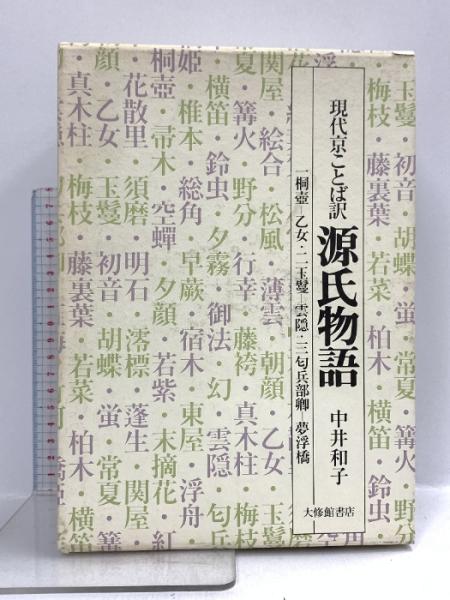 玉鬘・初音・胡蝶・蛍・常夏・篝
梅枝・藤裏葉・若菜・柏木・横笛・鈴虫
現代京ことば訳
源氏物語
中井和子
一桐壺―乙女・二玉鬘―雲隠・三匂兵部卿―夢浮橋
大修館書店
関屋・絵合・松風・薄雲・朝顔・乙女・
常夏・篝火・野分・行幸・藤袴・真木柱・梅
・横笛・鈴虫・夕霧・御法・幻・雲隠・匂兵
姫・椎本・総角・早蕨・宿木・東屋・浮舟・
桐壺・帚木・空蟬・夕顔・若紫・末摘花・紅
・花散里・須磨・明石・澪標・蓬生・関屋・
顔・乙女・玉鬘・初音・胡蝶・蛍・常夏・篝
・真木柱・梅枝・藤裏葉・若菜・柏木・横笛